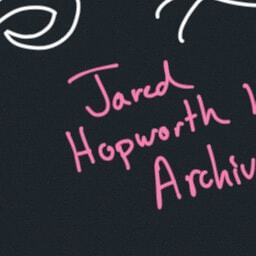 Jared
Hopworth
Archiv